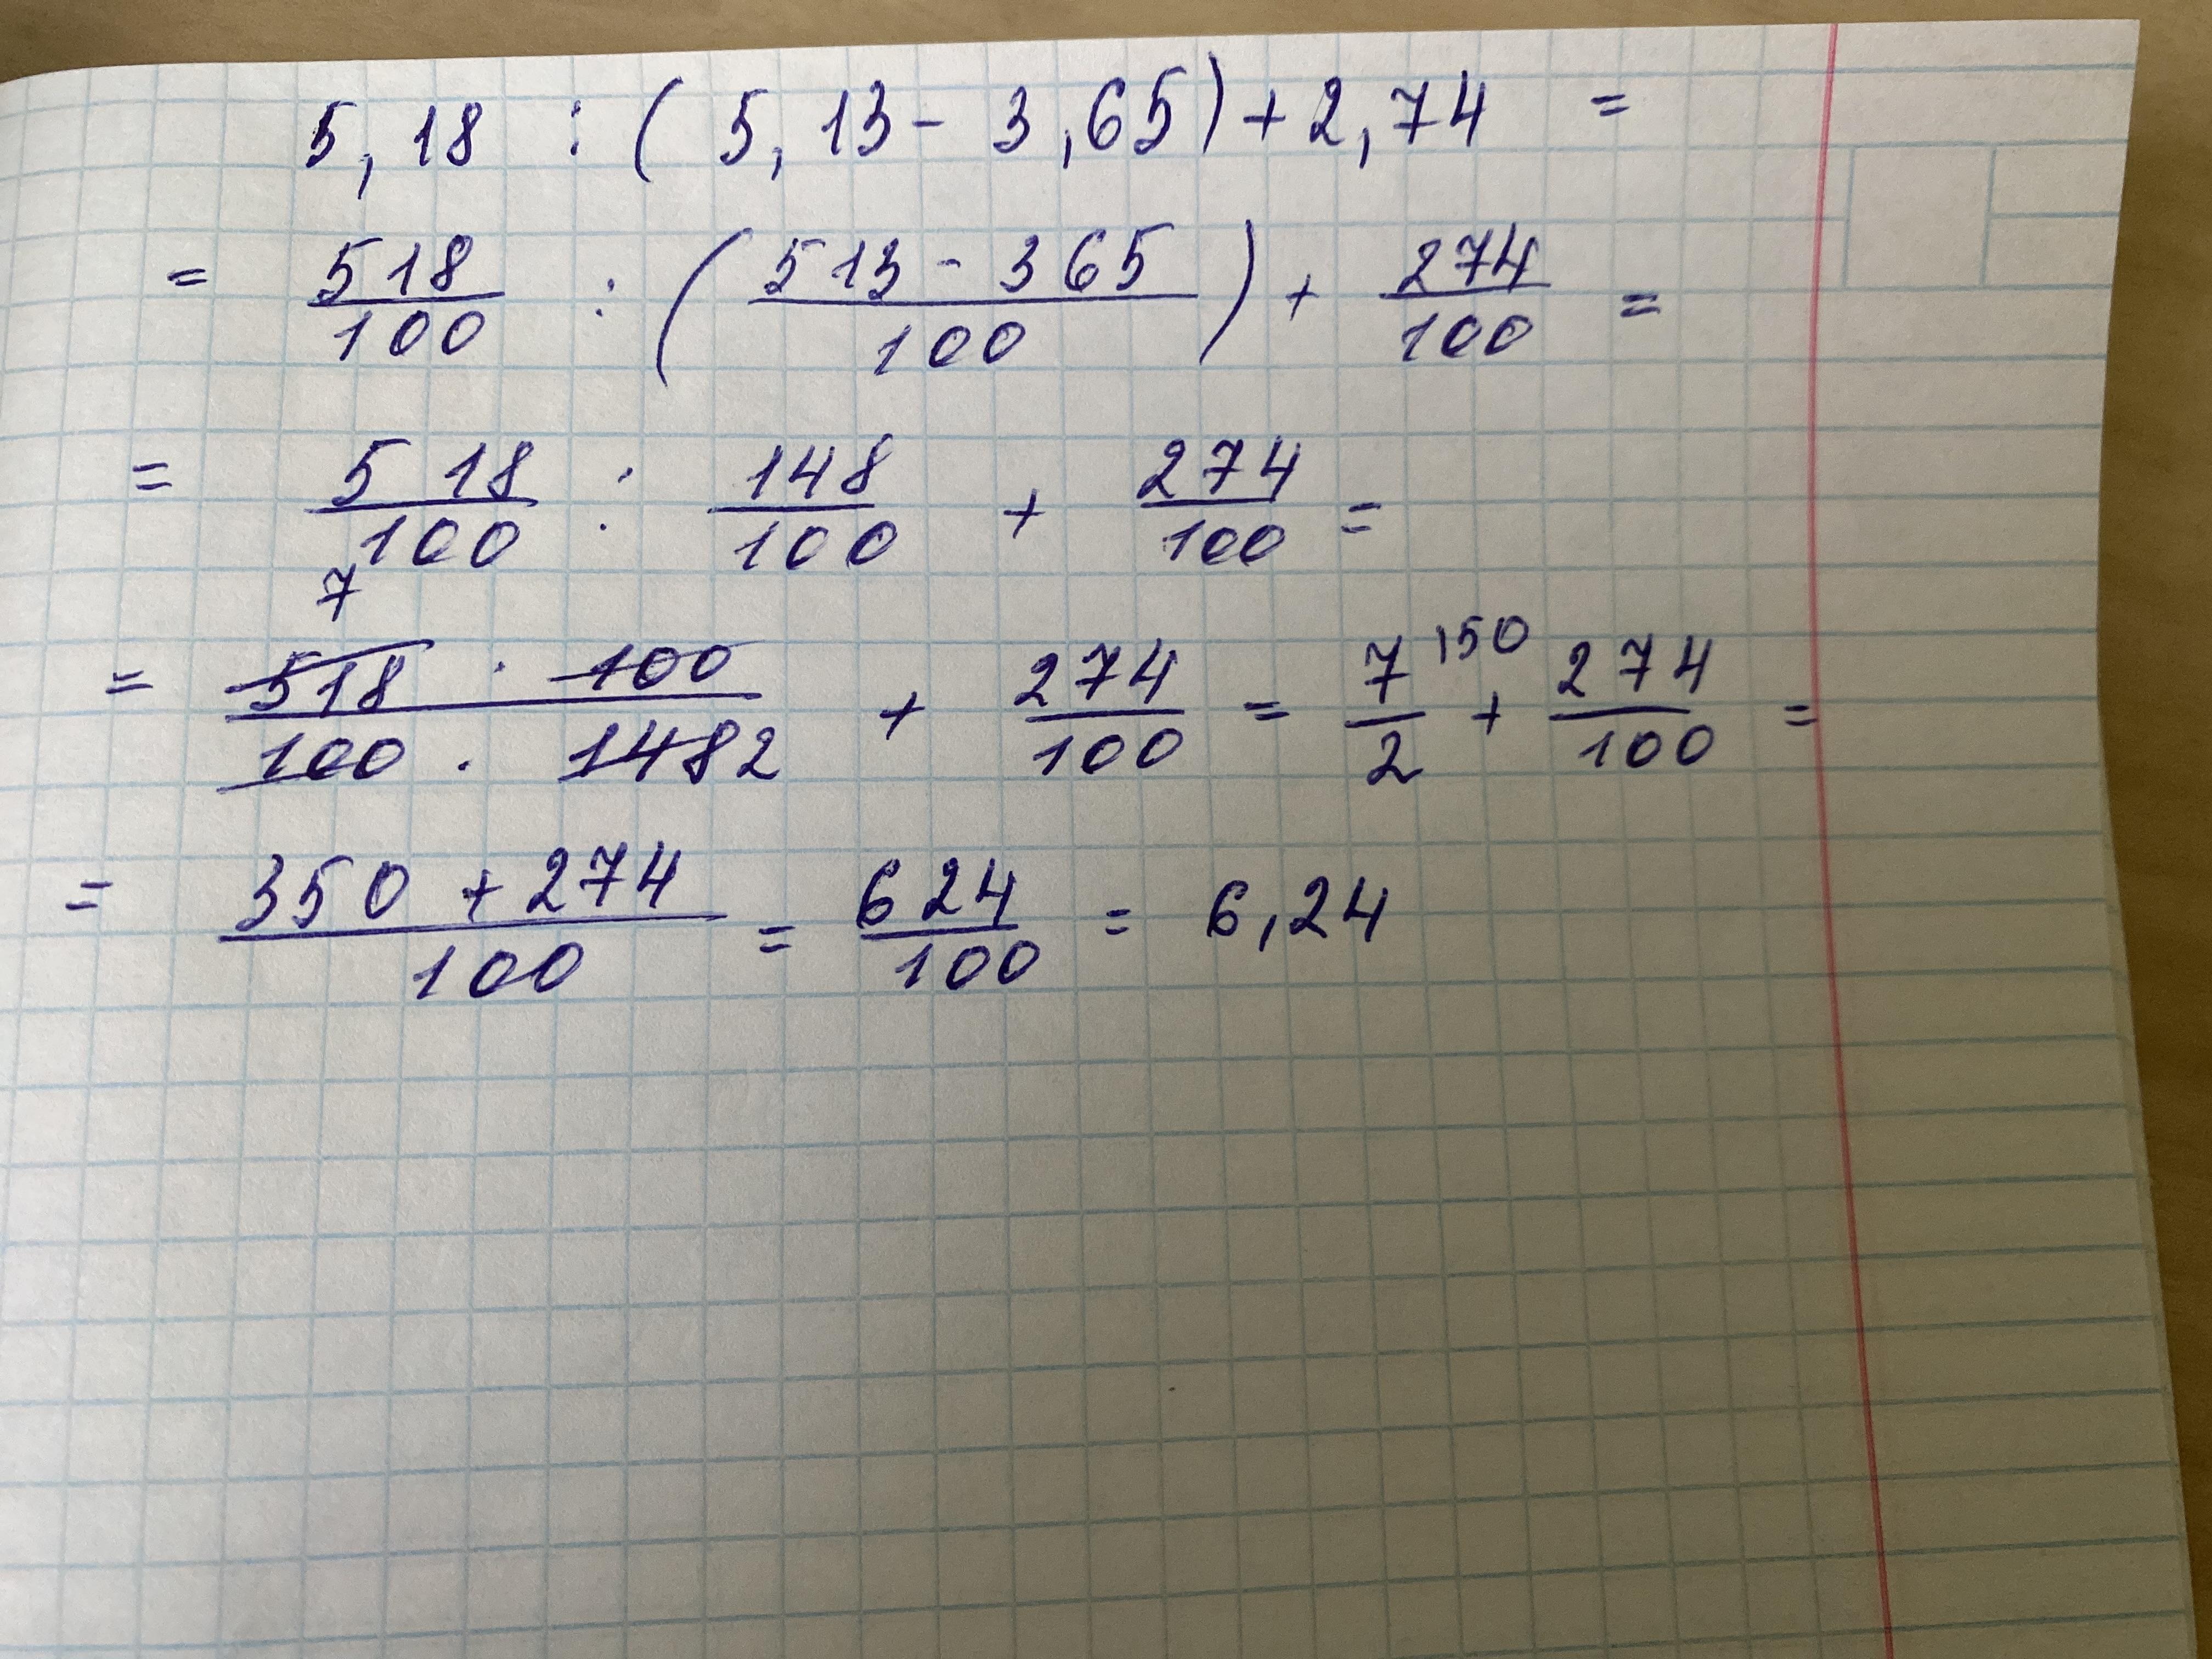 5,18 : (5,13 - 3,65) + 2,74 =
= 518/100 : (513 - 365/100) + 274/100 =
= 518/100 : 148/100 + 274/100 =
= 518 7 · 100/100 · 148 2 + 274/100 = 7/2 150 + 274/100 =
= 350 + 274/100 = 624/100 = 6,24